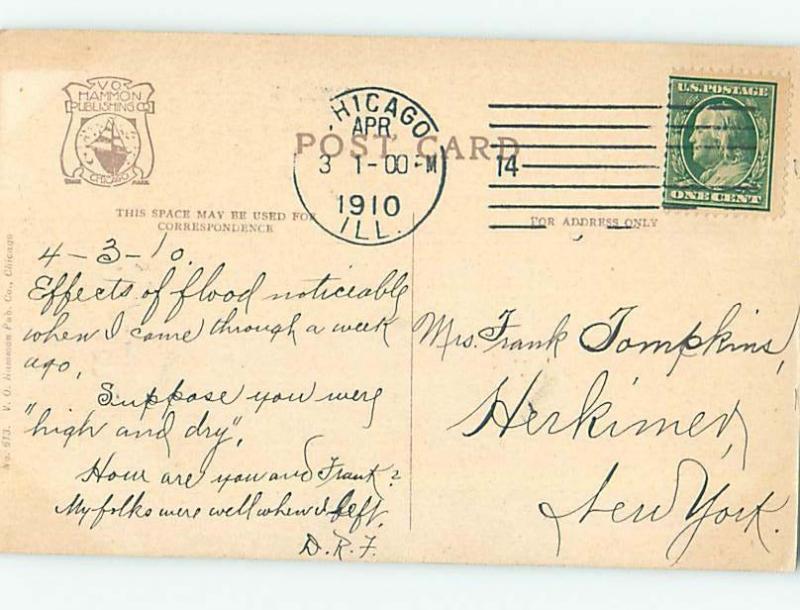 V.O.
HAMMON
PUBLISHING CO
CHICAGO
TRADE MARK
POST CARD
CHICAGO
APR
3 1-00 M
1910
ILL.
14
U.S. POSTAGE
ONE CENT
THIS SPACE MAY BE USED FOR
CORRESPONDENCE
FOR ADDRESS ONLY
No. 673. V. O. Hammon Pub. Co., Chicago
4-3-10.
Effects of flood noticeable
when I came through a week
ago,
Suppose you were
"high and dry".
How are you and Frank?
My folks were well when I left.
D.R.F.
Mrs. Frank Tompkins,
Herkimer,
New York.